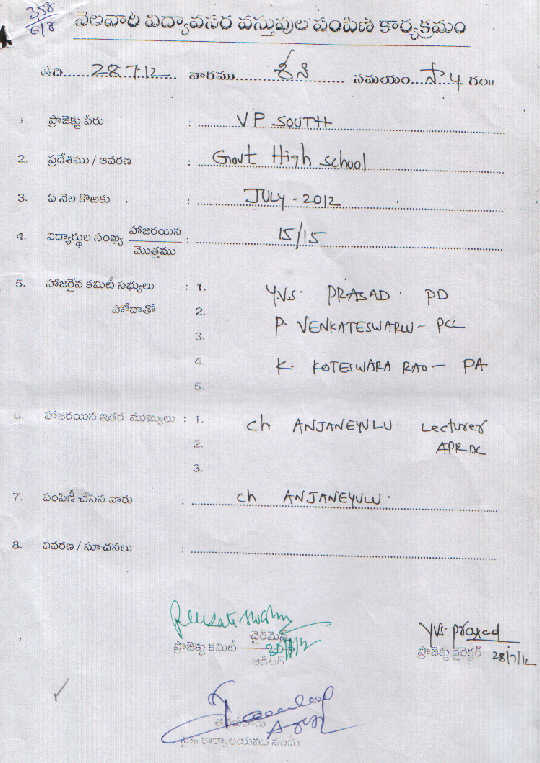 358
6/8
నెలవారి విద్యావసర వస్తువుల పంపిణి కార్యక్రమం
తేది 28.7.12 వారము శని సమయం సా 4 గం॥
1. ప్రాజెక్టు పేరు : VP SOUTH
2. ప్రదేశము / ఆవరణ : Govt High school
3. ఏ నెల కొఱకు : JULY - 2012
4. విద్యార్థుల సంఖ్య హాజరయిన : 15/15
మొత్తము
5. హాజరైన కమిటీ సభ్యులు : 1. Y.V.S. PRASAD. PD
హోదాతో 2. P. VENKATESWARLU - PCC
3.
4. K. KOTESWARA RAO - PA
5.
6. హాజరయిన ఇతర ముఖ్యులు : 1. Ch ANJANEYULU Lecturer
2. APRDC
3.
7. పంపిణీ చేసిన వారు : Ch ANJANEYULU.
8. వివరణ / సూచనలు :
చైర్మన్
ప్రాజెక్టు కమిటీ
YVS Prasad
ప్రాజెక్టు డైరెక్టర్ 28/7/12